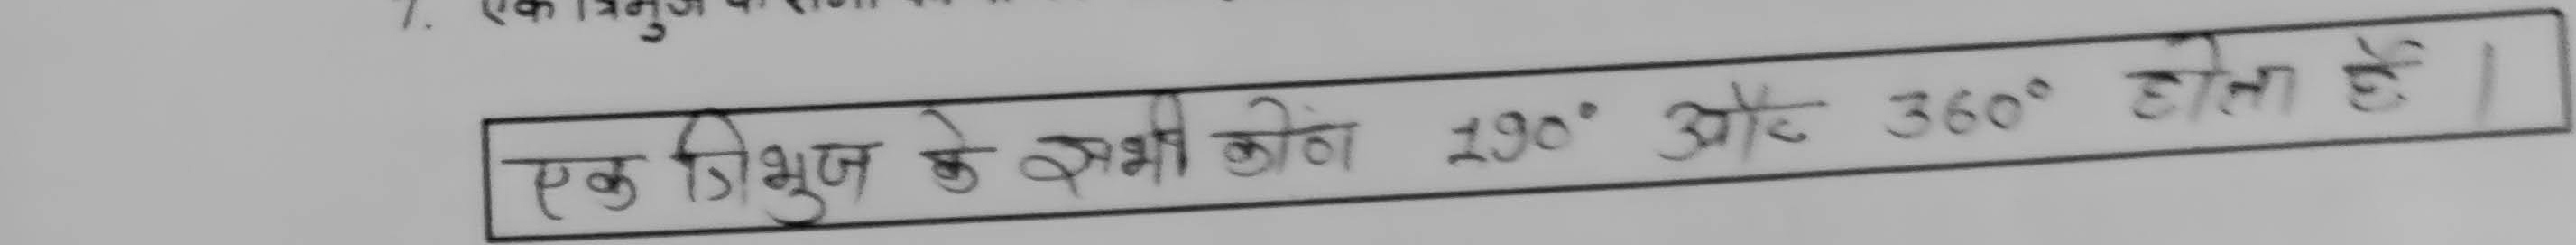 7. एक त्रिभुज के
एक त्रिभुज के सभी कोण 190° और 360° होता है।